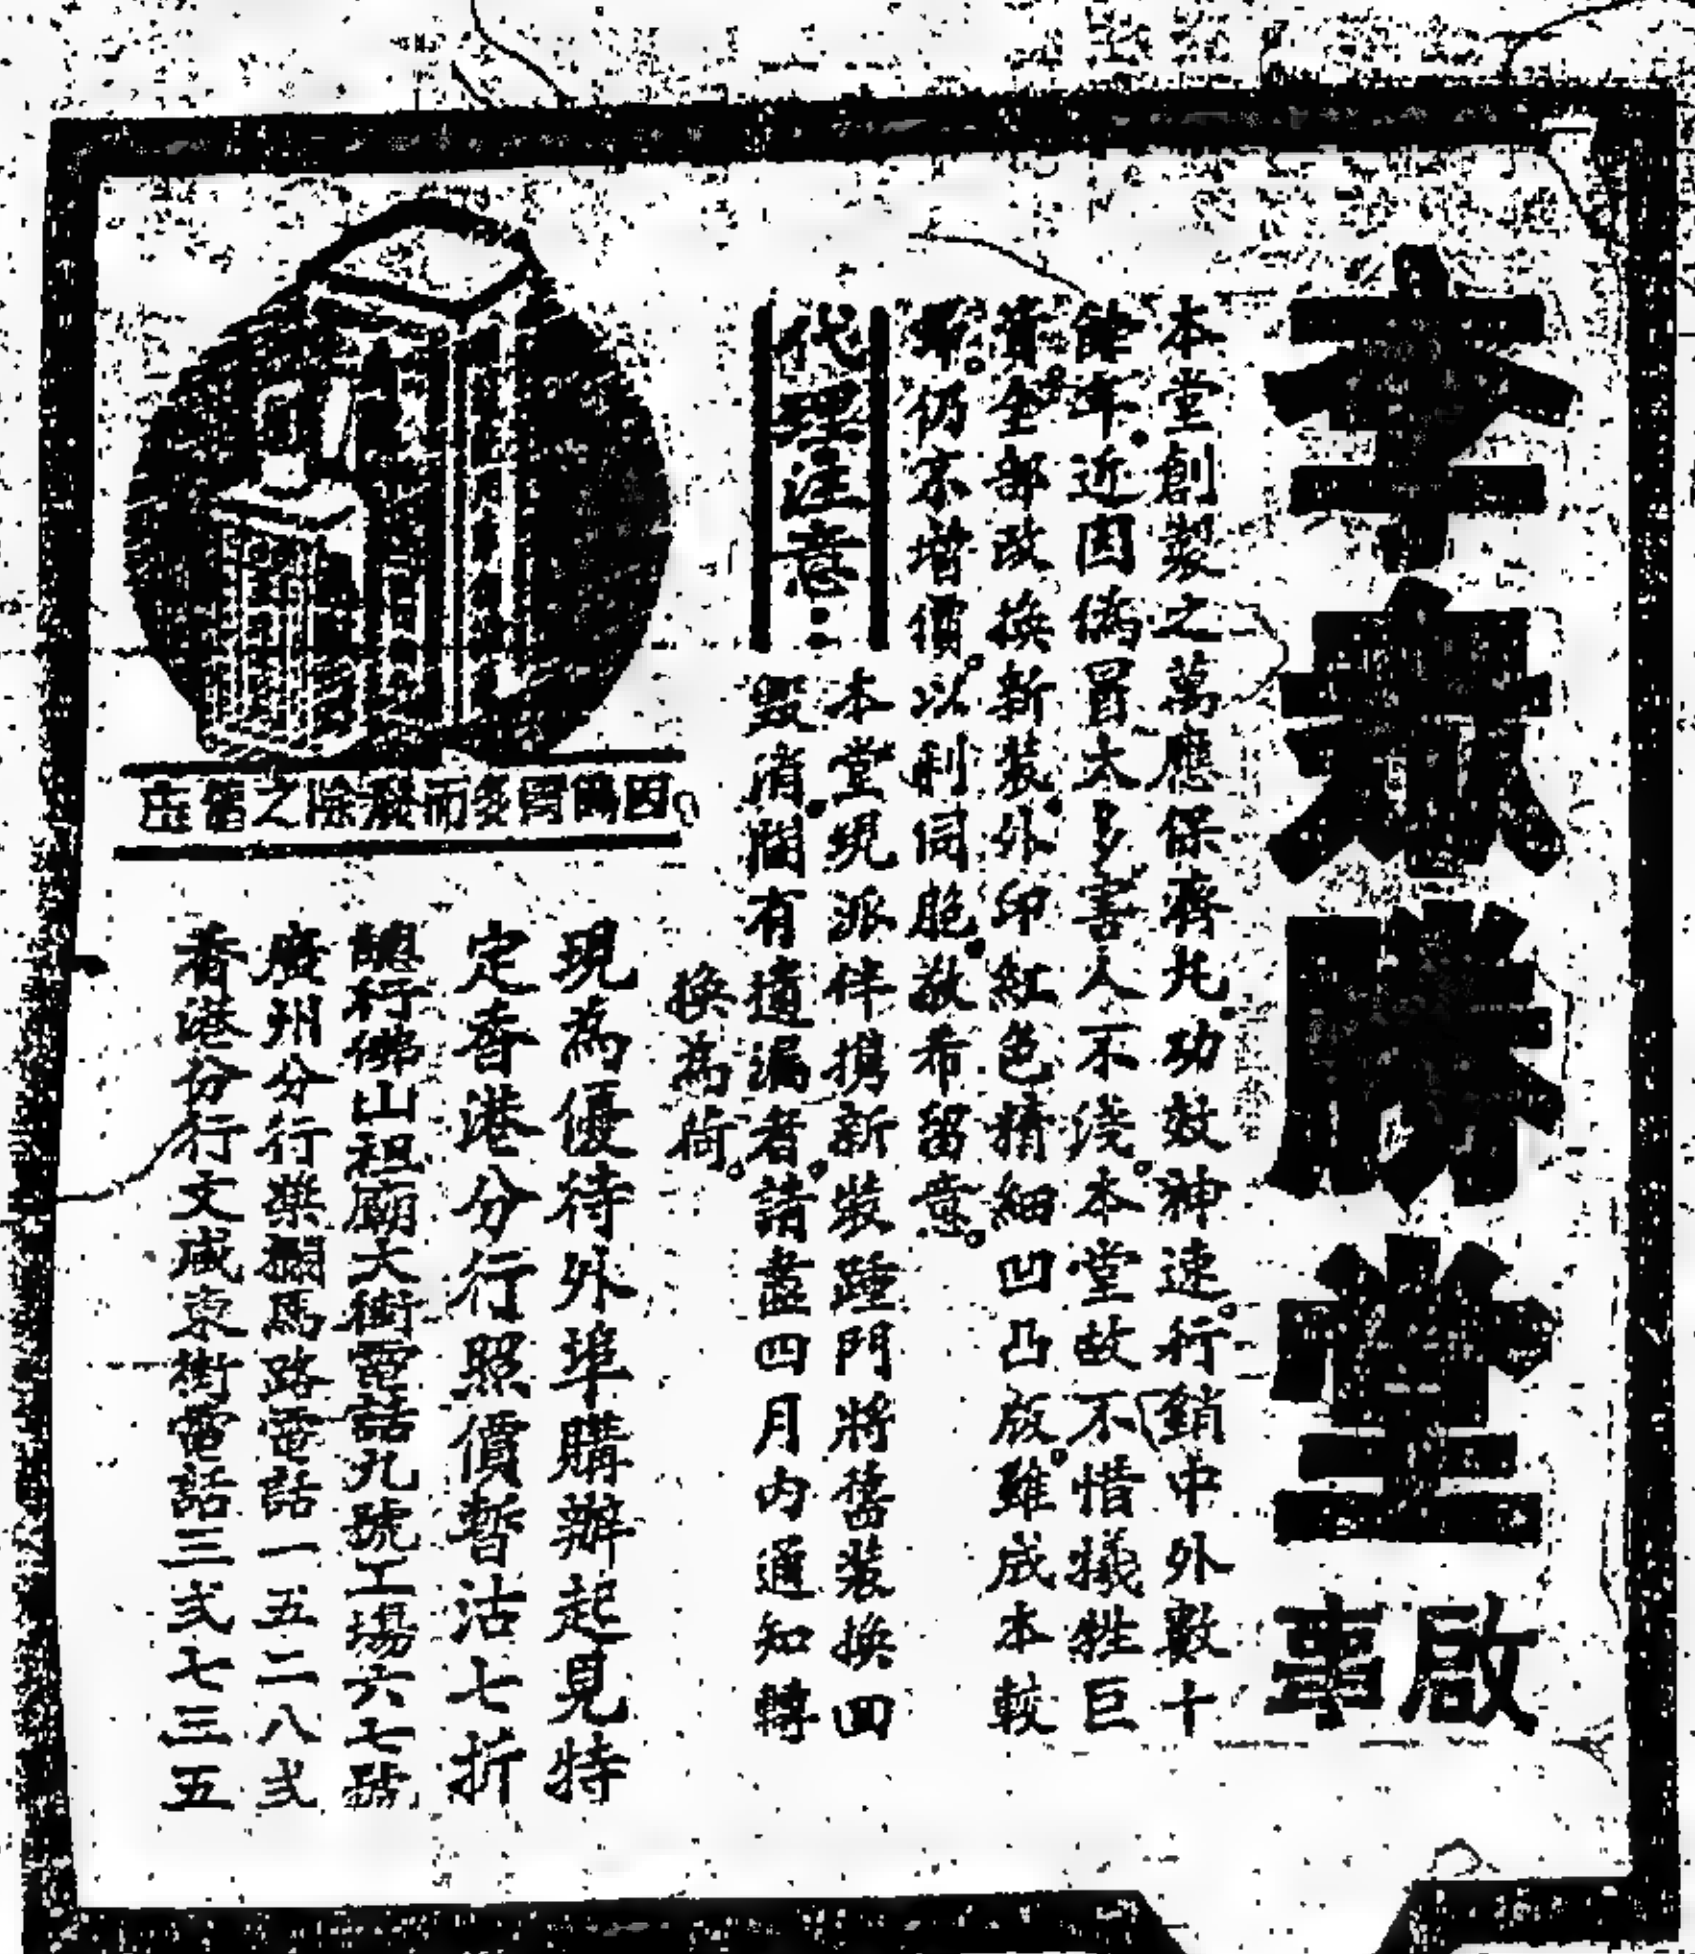 李眾勝堂
啟事
本堂創製之萬應保濟丸。功效神速。行銷中外數十
餘年。近因偽冒太多。害人不淺。本堂故不惜犧牲巨
資。全部改換新裝。外印紅色精細凹凸版。雖成本較
昂。仍不增價。以利同胞。敬希留意。
代理注意：
本堂現派伴携新裝踵門將舊裝換回
毀消。間有遺漏者。請盡四月內通知轉
換為荷。
因偽冒多而廢除之舊庄
現為優待外埠購辦起見特
定香港分行照價暫沽七折
總行佛山祖廟大街電話九號工場六七號
廣州分行漿欄馬路電話一五二八弍
香港分行文咸東街電話三弍七三五